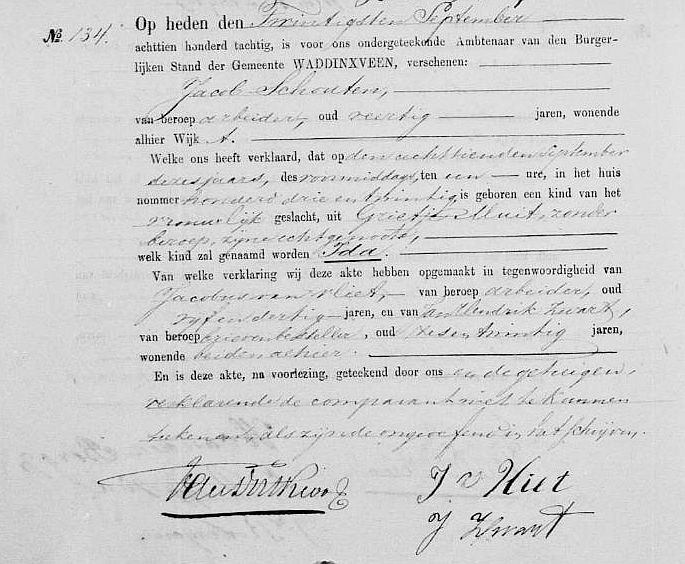 No. 134. Op heden den Twintigsten September
achttien honderd tachtig, is voor ons ondergeteekende Ambtenaar van den Burger-
lijken Stand der Gemeente WADDINXVEEN, verschenen:
Jacob Schouten,
van beroep arbeider, oud veertig jaren, wonende
alhier Wijk A.
Welke ons heeft verklaard, dat op den achttienden September
dezes jaars, des voormiddags, ten een ure, in het huis
nommer honderd drie en twintig, is geboren een kind van het
vrouwelijk geslacht, uit Grietje Muit, zonder
beroep, zijne echtgenoote,
welk kind zal genaamd worden Ida.
Van welke verklaring wij deze akte hebben opgemaakt in tegenwoordigheid van
Jacobus van Vliet, van beroep arbeider, oud
vyf en dertig jaren, en van Jan Hendrik Zwart,
van beroep brievenbesteller, oud zes en twintig jaren,
wonende beiden alhier.
En is deze akte, na voorlezing, geteekend door ons en de getuigen,
verklarende de comparant niet te kunnen
teekenen, als zijnde ongeoefend in het schrijven.
J v Vliet
J Zwart